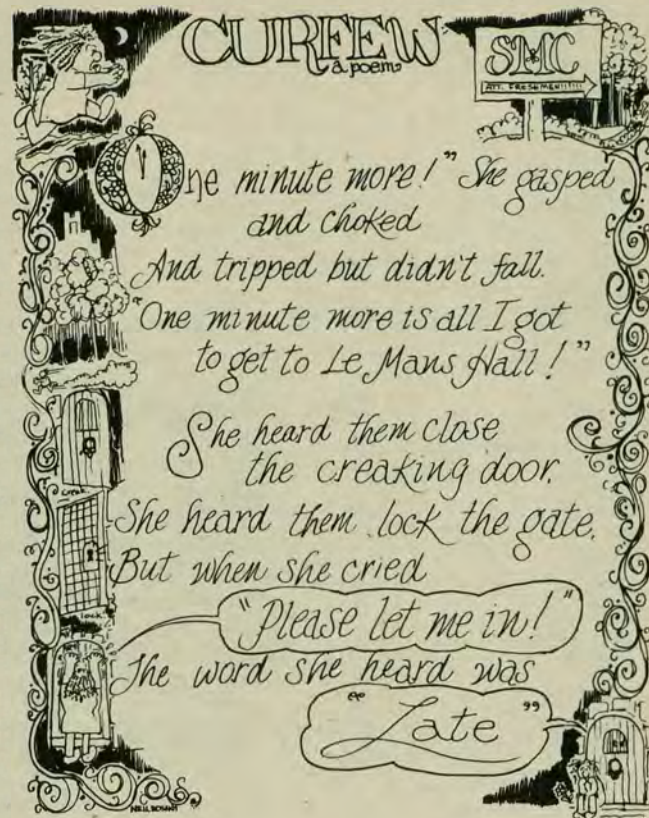 CURFEW
a poem
SMC
ATT. FRESHMEN!!!!!
One minute more!" She gasped
and choked
And tripped but didn't fall.
"One minute more is all I got
to get to Le Mans Hall!"
She heard them close
the creaking door.
She heard them lock the gate.
creak
But when she cried
"Please let me in!"
The word she heard was
"Late"